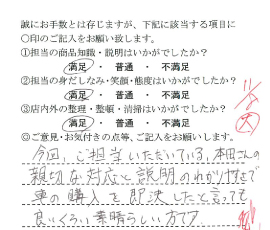 誠にお手数とは存じますが、下記に該当する項目に
○印のご記入をお願い致します。
①担当の商品知識・説明はいかがでしたか？
満足 ・ 普通 ・ 不満足
②担当の身だしなみ・笑顔・態度はいかがでしたか？
満足 ・ 普通 ・ 不満足
③店内外の整理・整頓・清掃はいかがでしたか？
満足 ・ 普通 ・ 不満足
◎ご意見・お気付きの点等、ご記入をお願いします。
今回、ご担当いただいている、本田さんの
親切な対応と説明のわかりやすさで
車の購入を即決したと言っても
良いくらい素晴らしい方です。